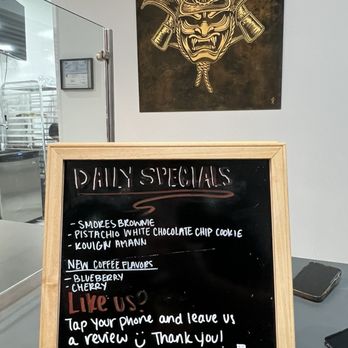 DAILY SPECIALS
- SMORES BROWNIE
- PISTACHIO WHITE CHOCOLATE CHIP COOKIE
- KOUIGN AMANN
NEW COFFEE FLAVORS
- BLUEBERRY
- CHERRY
LIKE US?
Tap your phone and leave us
a review Thank you!